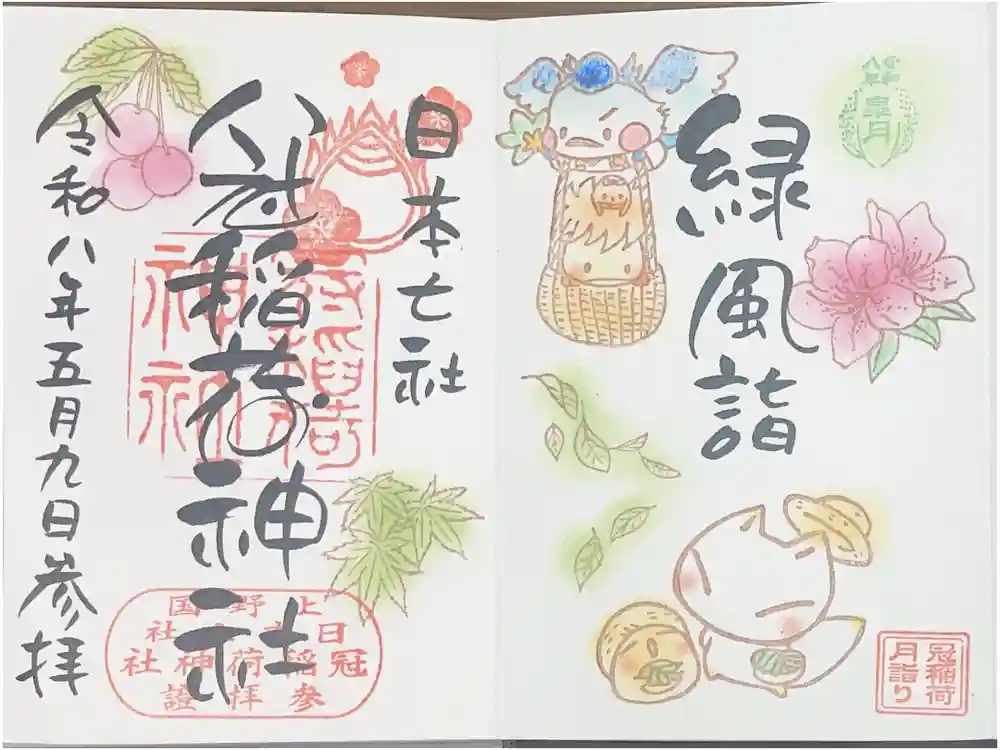 緑風詣
皐月
冠稲荷
月詣り
日本七社
冠稲荷神社
令和八年五月九日参拝
上野国
日本七社
冠稲荷神社
参拝證